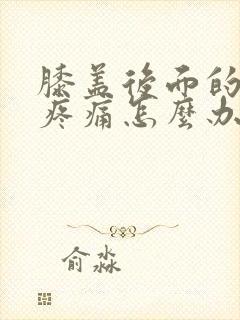 膝盖後而的
疼痛怎麼办
俞淼